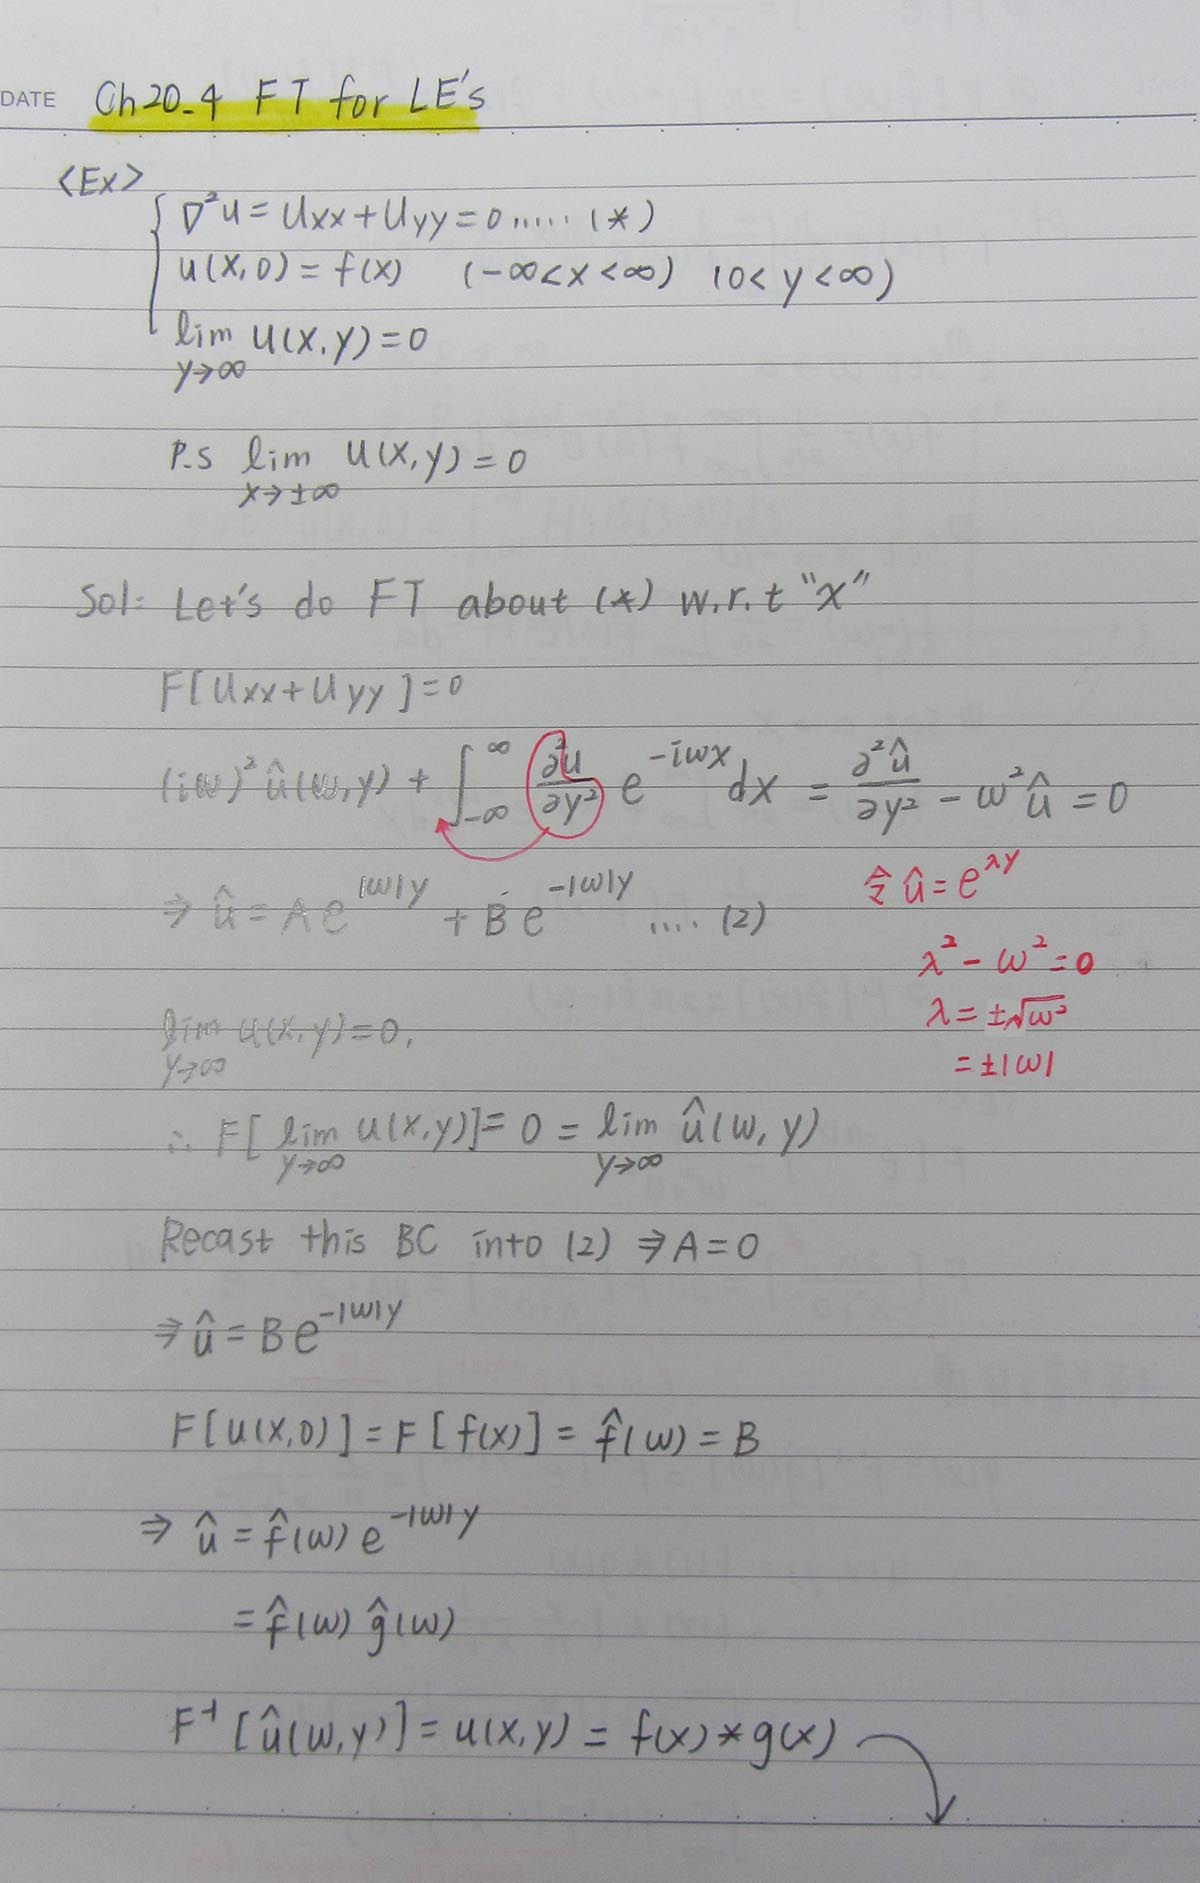 DATE Ch20.4 FT for LE's
<Ex>
∇²u = Uxx + Uyy = 0 ..... (*)
u(x,0) = f(x) (-∞<x<∞) (0<y<∞)
lim u(x,y) = 0
y→∞
P.S lim u(x,y) = 0
x→±∞
Sol: Let's do FT about (*) w.r.t "x"
F[Uxx+Uyy] = 0
(iω)² û(ω,y) + ∫_{-∞}^{∞} ∂²u/∂y² e^{-iωx} dx = ∂²û/∂y² - ω²û = 0
⇒ û = Ae^{|ω|y} + Be^{-|ω|y} .... (2)
令 û = e^{λy}
λ² - ω² = 0
λ = ±√ω²
= ±|ω|
lim u(x,y) = 0,
y→∞
∴ F[lim u(x,y)] = 0 = lim û(ω,y)
y→∞ y→∞
Recast this BC into (2) ⇒ A = 0
⇒ û = Be^{-|ω|y}
F[u(x,0)] = F[f(x)] = f̂(ω) = B
⇒ û = f̂(ω) e^{-|ω|y}
= f̂(ω) ĝ(ω)
F⁻¹[û(ω,y)] = u(x,y) = f(x) * g(x)